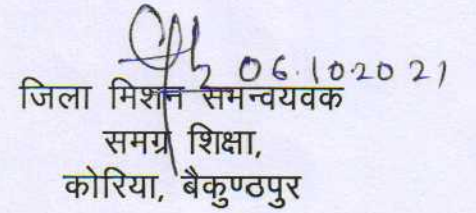 06.10.2021
जिला मिशन समन्वयवक
समग्र शिक्षा,
कोरिया, बैकुण्ठपुर